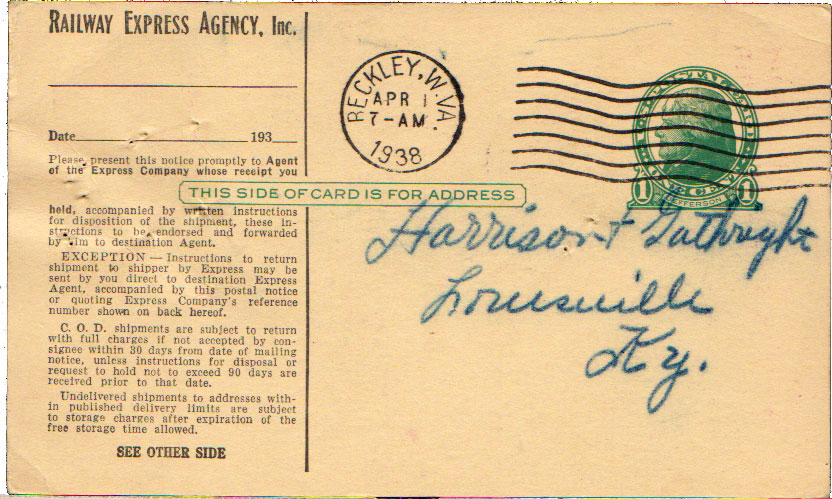 RAILWAY EXPRESS AGENCY, INC.
Date 193
Please present this notice promptly to Agent
of the Express Company whose receipt you
hold, accompanied by written instructions
for disposition of the shipment, these in-
structions to be endorsed and forwarded
by him to destination Agent.
EXCEPTION — Instructions to return
shipment to shipper by Express may be
sent by you direct to destination Express
Agent, accompanied by this postal notice
or quoting Express Company's reference
number shown on back hereof.
C. O. D. shipments are subject to return
with full charges if not accepted by con-
signee within 30 days from date of mailing
notice, unless instructions for disposal or
request to hold not to exceed 90 days are
received prior to that date.
Undelivered shipments to addresses with-
in published delivery limits are subject
to storage charges after expiration of the
free storage time allowed.
SEE OTHER SIDE
BECKLEY, W. VA.
APR 1
7-AM
1938
THIS SIDE OF CARD IS FOR ADDRESS
1 ONE CENT 1
JEFFERSON
Harrison + Gathright
Louisville
Ky.